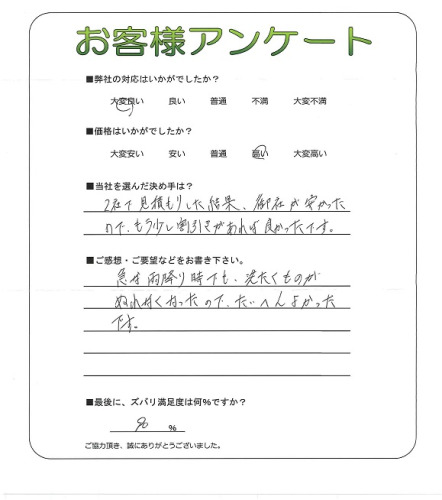 お客様アンケート
■弊社の対応はいかがでしたか？
大変良い 良い 普通 不満 大変不満
■価格はいかがでしたか？
大変安い 安い 普通 高い 大変高い
■当社を選んだ決め手は？
2社で見積もりした結果、御社が安かった
ので、もう少し割引きがあれば良かったです。
■ご感想・ご要望などをお書き下さい。
急な雨降り時でも、洗たくものが
ぬれなくなったので、たいへんよかった
です。
■最後に、ズバリ満足度は何％ですか？
％
ご協力頂き、誠にありがとうございました。